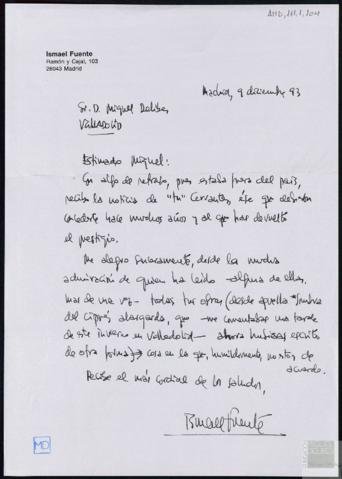 AMD, 111, 1, 204
Ismael Fuente
Ramón y Cajal, 103
28043 Madrid
Madrid, 9 diciembre 93
Sr. D. Miguel Delibes
VALLADOLID
Estimado Miguel:
Con algo de retraso, pues estaba fuera del país,
recibo la noticia de "tu" Cervantes, ése que debieron
concederte hace muchos años y al que has devuelto
el prestigio.
Me alegro sinceramente, desde la mucha
admiración de quien ha leído -alguna de ellas
mas de una vez- todas tus obras (desde aquella "Sombra
del ciprés alargada, que -me comentabas una tarde
de este invierno en Valladolid- ahora hubieses escrito
de otra forma) cosa en la que, humildemente, no estoy de
acuerdo.
Recibe el más cordial de los saludos,
Ismael Fuente
MD